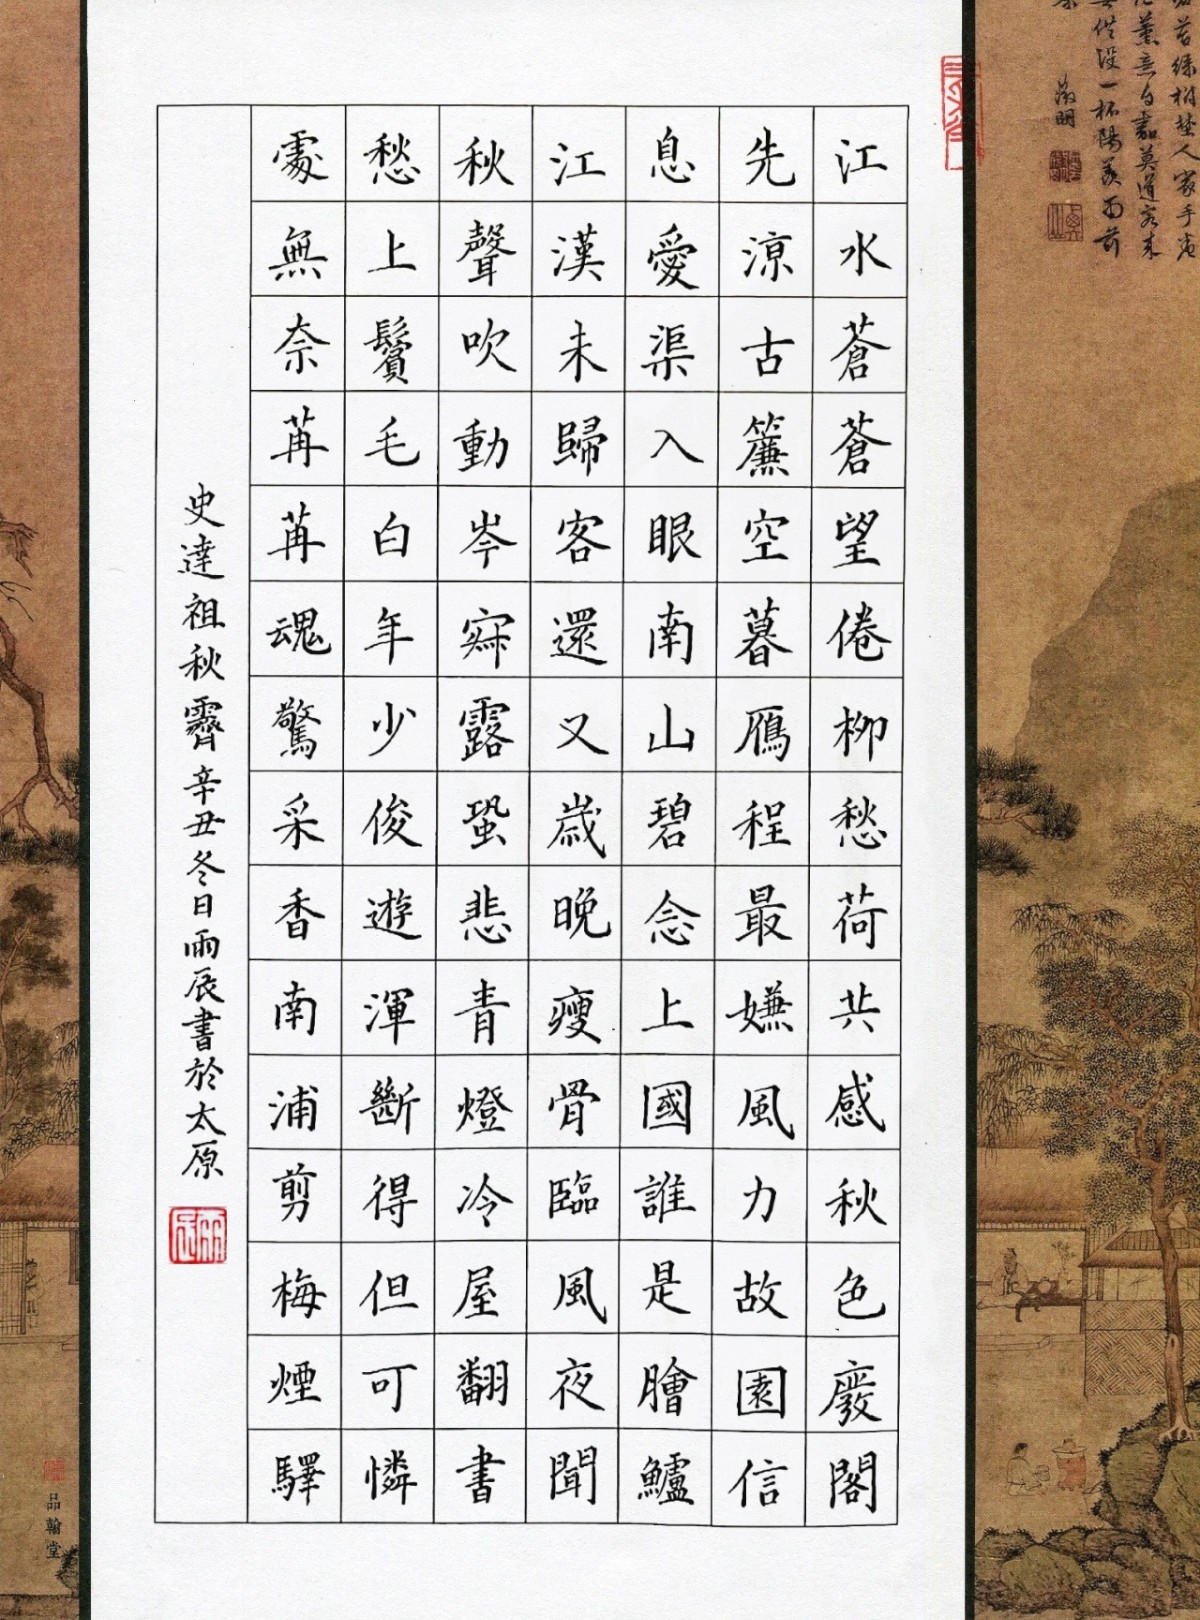 莫道客來
供設一杯陽羨雨前
徵明
江水蒼蒼望倦柳愁荷共感秋色廢閣
先涼古簾空暮鴈程最嫌風力故園信
息愛渠入眼南山碧念上國誰是膾鱸
江漢未歸客還又歲晚瘦骨臨風夜聞
秋聲吹動岑寂露蛩悲青燈冷屋翻書
愁上鬢毛白年少俊遊渾斷得但可憐
處無奈苒苒魂驚采香南浦剪梅煙驛
史達祖秋霽辛丑冬日雨辰書於太原
雨辰
品翰堂